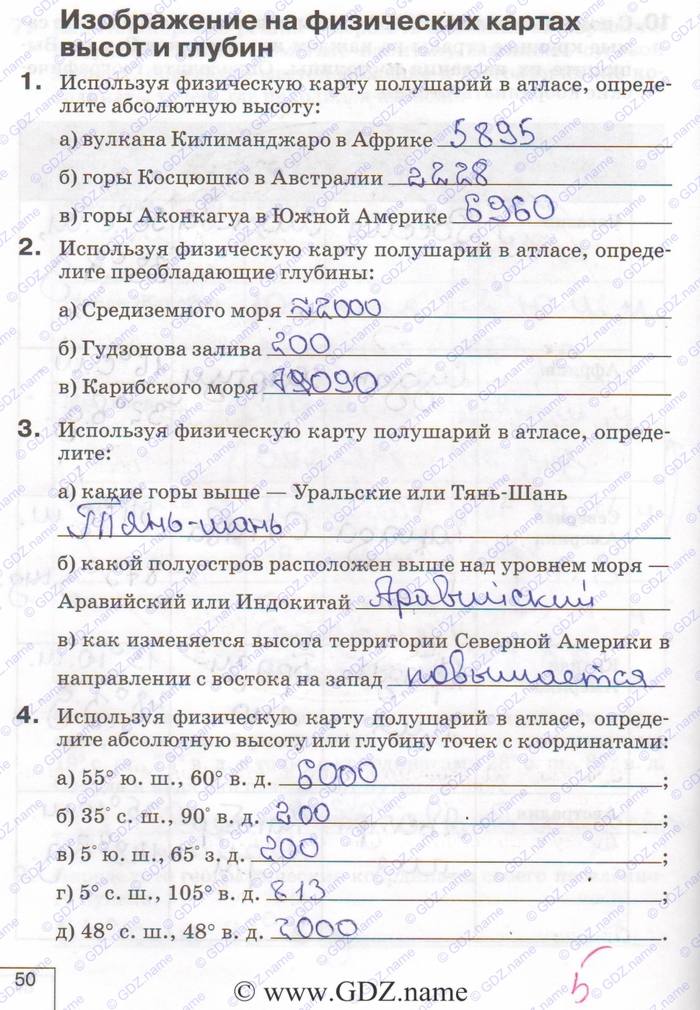 Изображение на физических картах
высот и глубин
1. Используя физическую карту полушарий в атласе, опреде-
лите абсолютную высоту:
а) вулкана Килиманджаро в Африке 5895
б) горы Косцюшко в Австралии 2228
в) горы Аконкагуа в Южной Америке 6960
2. Используя физическую карту полушарий в атласе, опреде-
лите преобладающие глубины:
а) Средиземного моря ≈2000
б) Гудзонова залива 200
в) Карибского моря
3. Используя физическую карту полушарий в атласе, опреде-
лите:
а) какие горы выше — Уральские или Тянь-Шань
Тянь-шань
б) какой полуостров расположен выше над уровнем моря —
Аравийский или Индокитай Аравийский
в) как изменяется высота территории Северной Америки в
направлении с востока на запад повышается
4. Используя физическую карту полушарий в атласе, опреде-
лите абсолютную высоту или глубину точек с координатами:
а) 55° ю. ш., 60° в. д. 6000 ;
б) 35° с. ш., 90° в. д. 200 ;
в) 5° ю. ш., 65° з. д. 200 ;
г) 5° с. ш., 105° в. д. 813 ;
д) 48° с. ш., 48° в. д. 2000 .
50
5
© www.GDZ.name